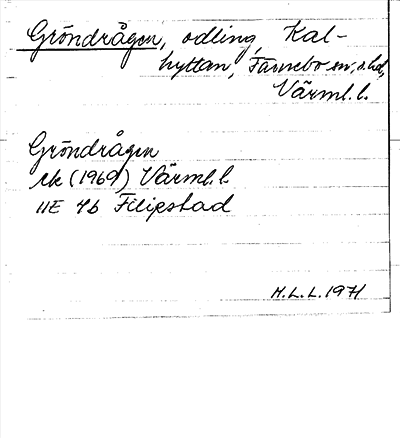 Gröndrågen, odling, Kal-
hyttan, Färnebo sn, s. hd,
Värml. l.
Gröndrågen
rk (1969) Värml. l.
11E 4b Filipstad
H.L.L. 1971